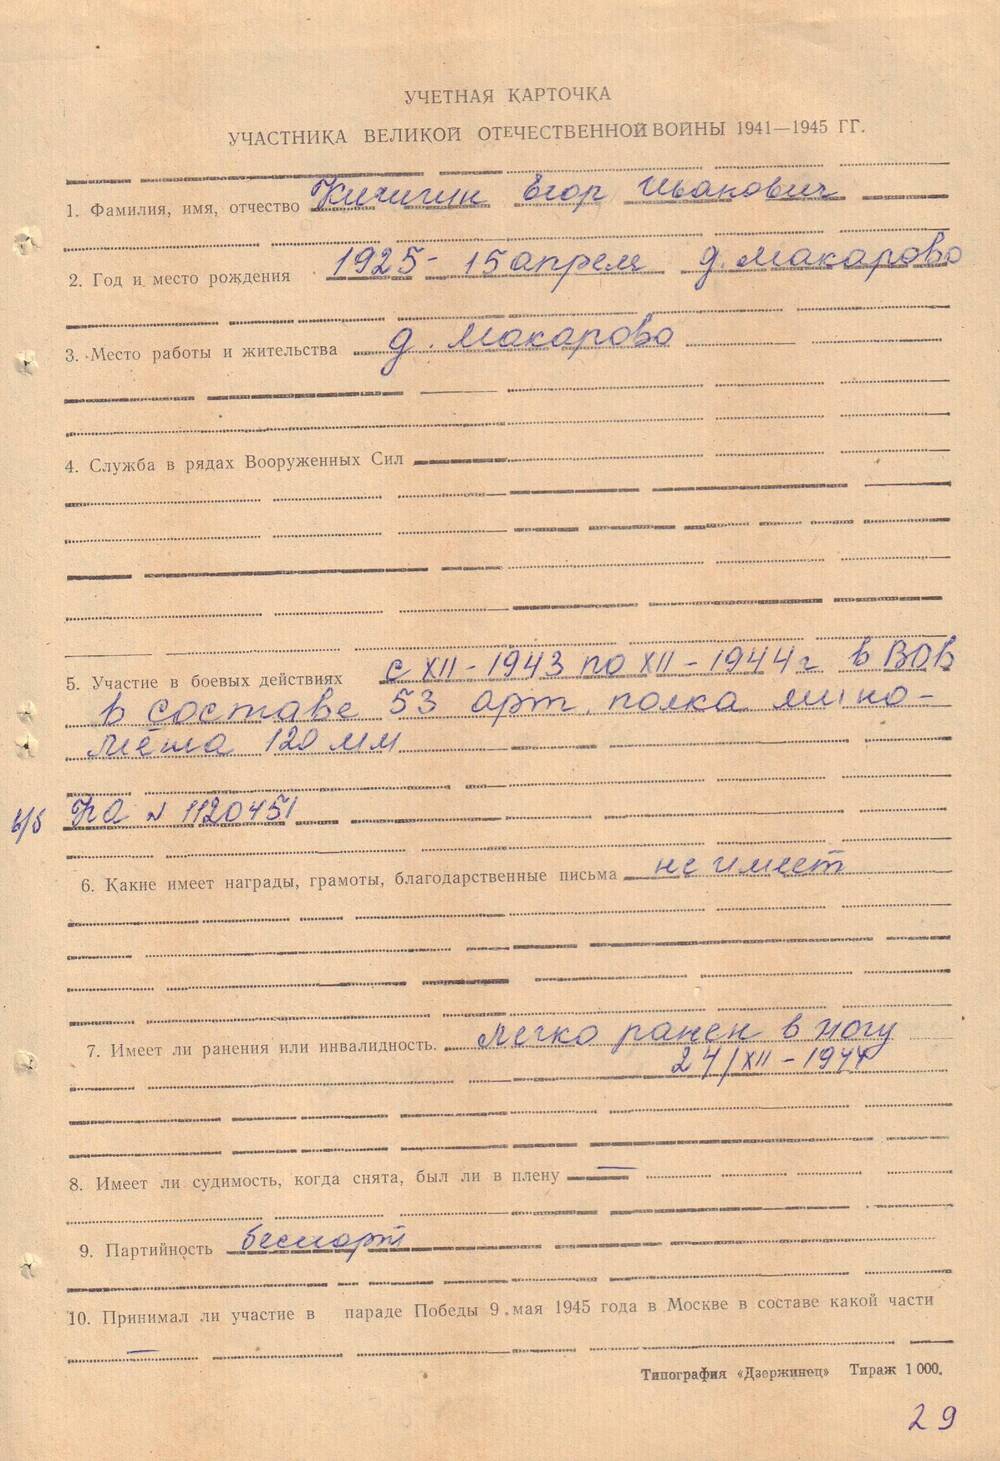 УЧЕТНАЯ КАРТОЧКА
УЧАСТНИКА ВЕЛИКОЙ ОТЕЧЕСТВЕННОЙ ВОЙНЫ 1941—1945 ГГ.
1. Фамилия, имя, отчество Кичигин Егор Иванович
2. Год и место рождения 1925 - 15 апреля д. Макарово
3. Место работы и жительства д. Макарово
4. Служба в рядах Вооруженных Сил
5. Участие в боевых действиях с XII - 1943 по XII - 1944 г в ВОВ
в составе 53 арт. полка мино-
мёта 120 мм
в/б НО № 1120451
6. Какие имеет награды, грамоты, благодарственные письма не имеет
7. Имеет ли ранения или инвалидность. легко ранен в ногу
24/XII - 1944
8. Имеет ли судимость, когда снята, был ли в плену —
9. Партийность беспарт
10. Принимал ли участие в параде Победы 9 мая 1945 года в Москве в составе какой части
—
Типография «Дзержинец» Тираж 1 000.
29